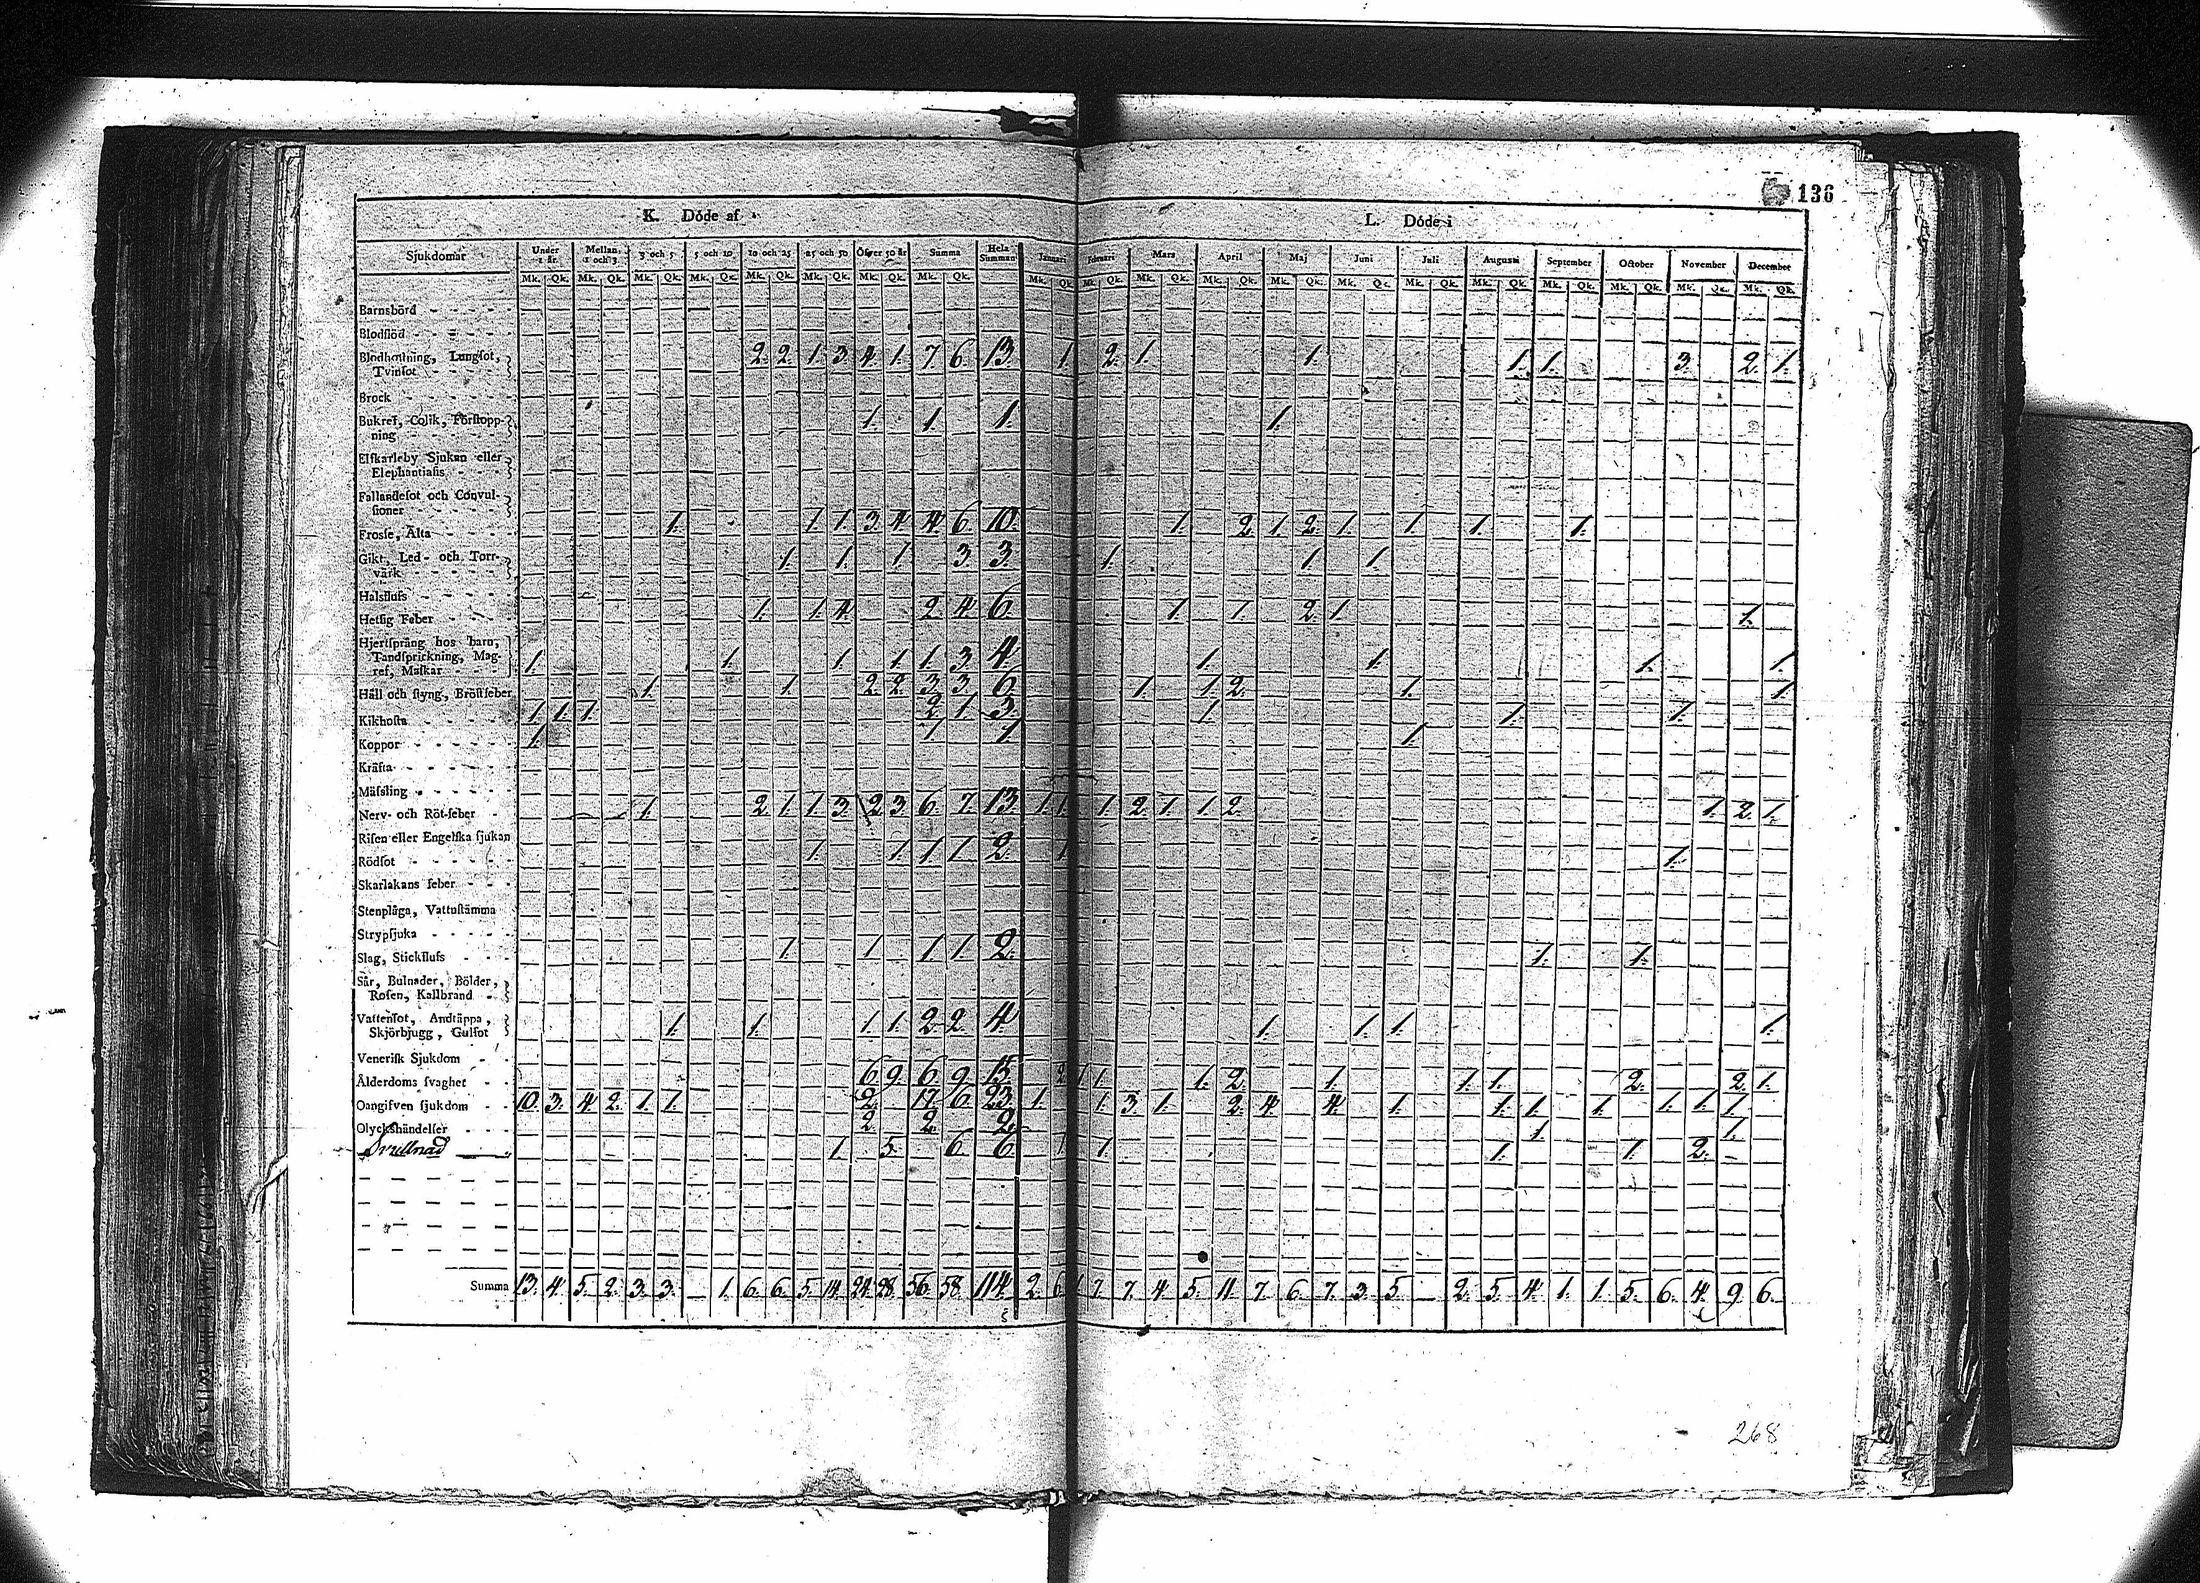 136
K. Döde af
L. Döde i
Sjukdomar Under 1 år. Mellan 1 och 3 3 och 5 5 och 10 10 och 25 25 och 50 Öfver 50 år Summa Hela Summan Januari Februari Mars April Maj Juni Juli Augusti September October November December
Mk. Qk. Mk. Qk. Mk. Qk. Mk. Qk. Mk. Qk. Mk. Qk. Mk. Qk. Mk. Qk. Mk. Qk. Mk. Qk. Mk. Qk. Mk. Qk. Mk. Qk. Mk. Qk. Mk. Qk. Mk. Qk. Mk. Qk. Mk. Qk. Mk. Qk. Mk. Qk.
Barnsbörd
Blodflöd
Blodhostning, Lungsot,
Tvinsot 2. 2. 1. 3. 4. 1. 7. 6. 13. 1. 2. 1. 1. 1. 1. 3. 2. 1.
Brock
Bukref, Colik, Förstopp-
ning 1. 1. 1. 1.
Elfkarleby Sjukan eller
Elephantiasis
Fallandesot och Convul-
sioner
Frossa, Älta 1. 1. 1. 3. 4. 4. 6. 10. 1. 2. 1. 2. 1. 1. 1. 1.
Gikt, Led- och Torr-
värk 1. 1. 1. 3. 3. 1. 1. 1.
Halsfluss
Hetsig Feber 1. 1. 4. 2. 4. 6. 1. 1. 2. 1. 1.
Hjertspräng hos barn,
Tandsprickning, Mag-
ref, Maskar 1. 1. 1. 1. 1. 3. 4. 1. 1. 1. 1.
Håll och styng, Bröstfeber 1. 1. 2. 2. 3. 3. 6. 1. 1. 2. 1. 1.
Kikhosta 1. 1. 1. 2. 1. 3. 1. 1. 1.
Koppor 1. 1. 1. 1.
Kräfta
Mässling
Nerv- och Röt-feber 1. 2. 1. 1. 3. 2. 3. 6. 7. 13. 1. 1. 1. 2. 1. 1. 2. 1. 2. 1.
Risen eller Engelska sjukan
Rödsot 1. 1. 1. 1. 2. 1. 1.
Skarlakans feber
Stenplåga, Vattustämma
Strypsjuka
Slag, Stickfluss 1. 1. 1. 1. 2. 1. 1.
Sår, Bulnader, Bölder,
Rosen, Kallbrand
Vattensot, Andtäppa,
Skjörbjugg, Gulsot 1. 1. 1. 1. 2. 2. 4. 1. 1. 1. 1.
Venerisk Sjukdom
Ålderdoms svaghet 6. 9. 6. 9. 15. 2. 1. 1. 1. 2. 1. 1. 1. 2. 2. 1.
Oangifven sjukdom 10. 3. 4. 2. 1. 1. 2. 17. 6. 23. 1. 1. 3. 1. 2. 4. 4. 1. 1. 1. 1. 1. 1. 1.
Olyckshändelser 2. 2. 2. 1. 1.
Svullnad 1. 5. 6. 6. 1. 1. 1. 1. 2.
Summa 13. 4. 5. 2. 3. 3. — 1. 6. 6. 5. 14. 24. 28. 56. 58. 114. 2. 6. 1. 7. 7. 4. 5. 11. 7. 6. 7. 3. 5. — 2. 5. 4. 1. 1. 5. 6. 4. 9. 6.
268